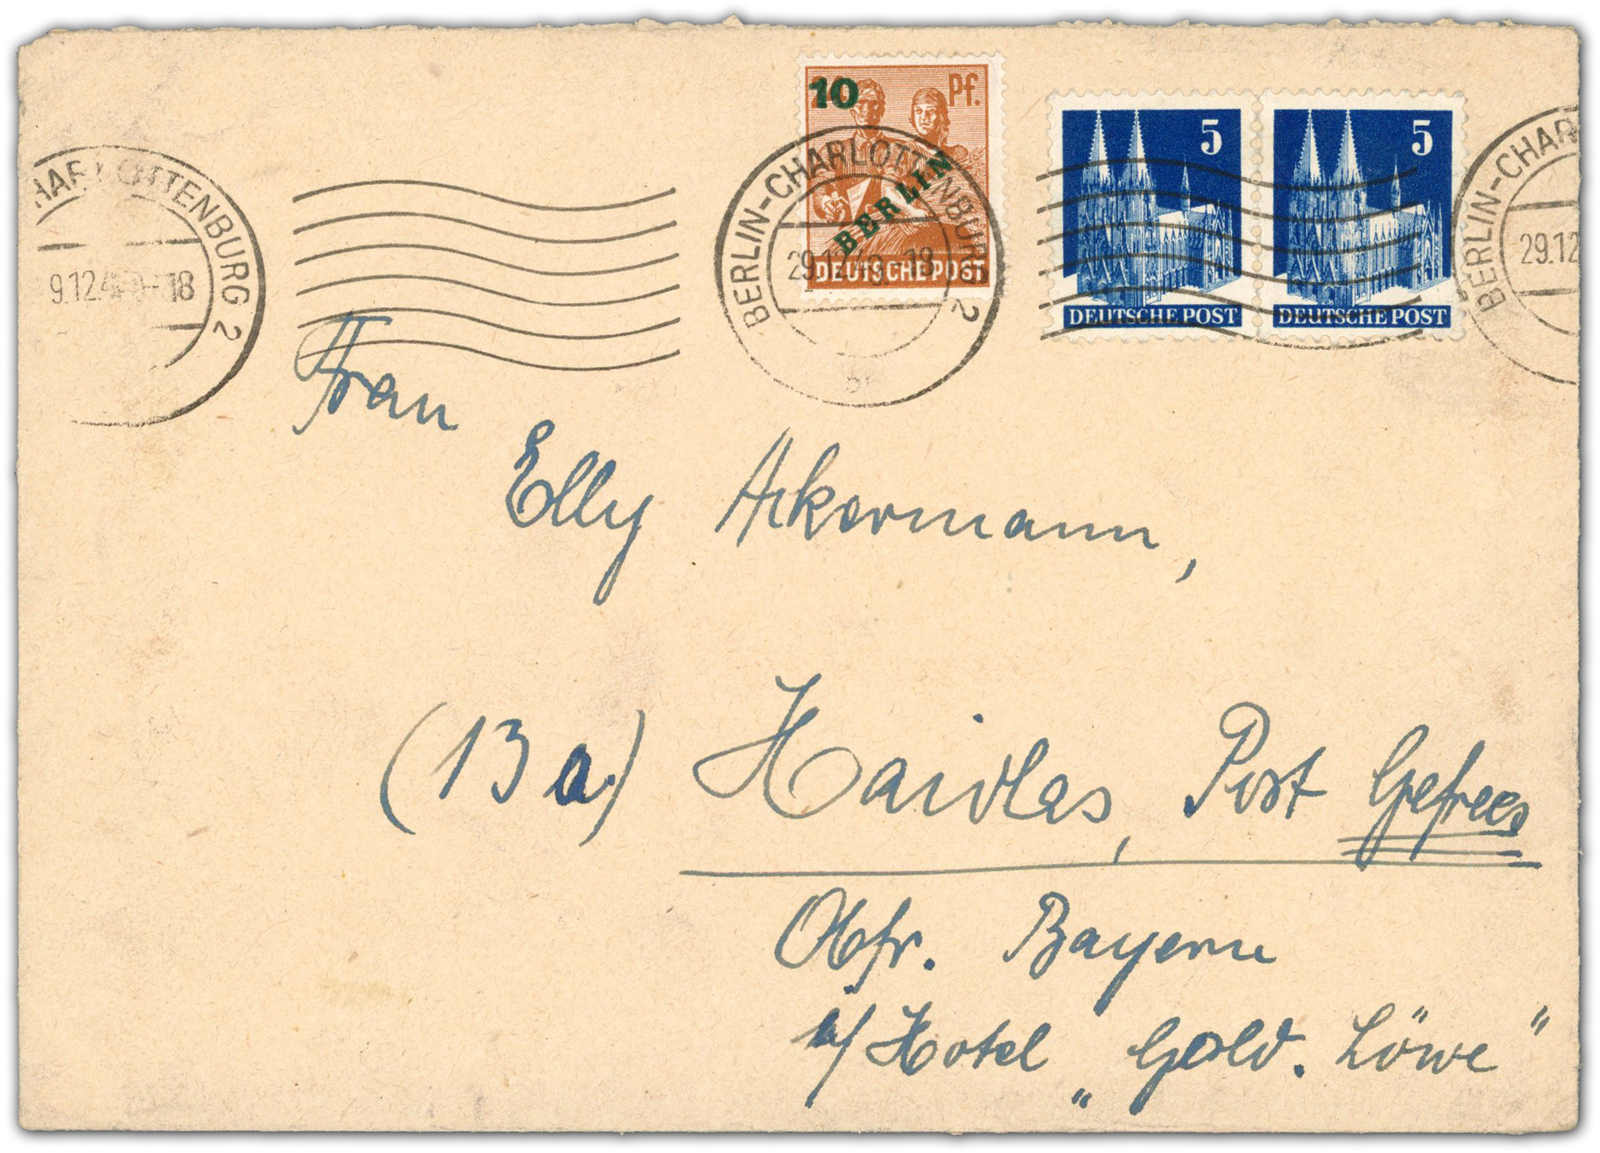 10 Pf.
BERLIN
DEUTSCHE POST
5
DEUTSCHE POST
5
DEUTSCHE POST
HARLOTTENBURG 2
9.12.4 -18
BERLIN-CHARLOTTENBURG 2
29.12.49.-18
BERLIN-CHAR
29.12
Frau
Elly Ackermann,
(13a) Haidlas, Post Gefrees
Obfr. Bayern
Hotel „Gold. Löwe"